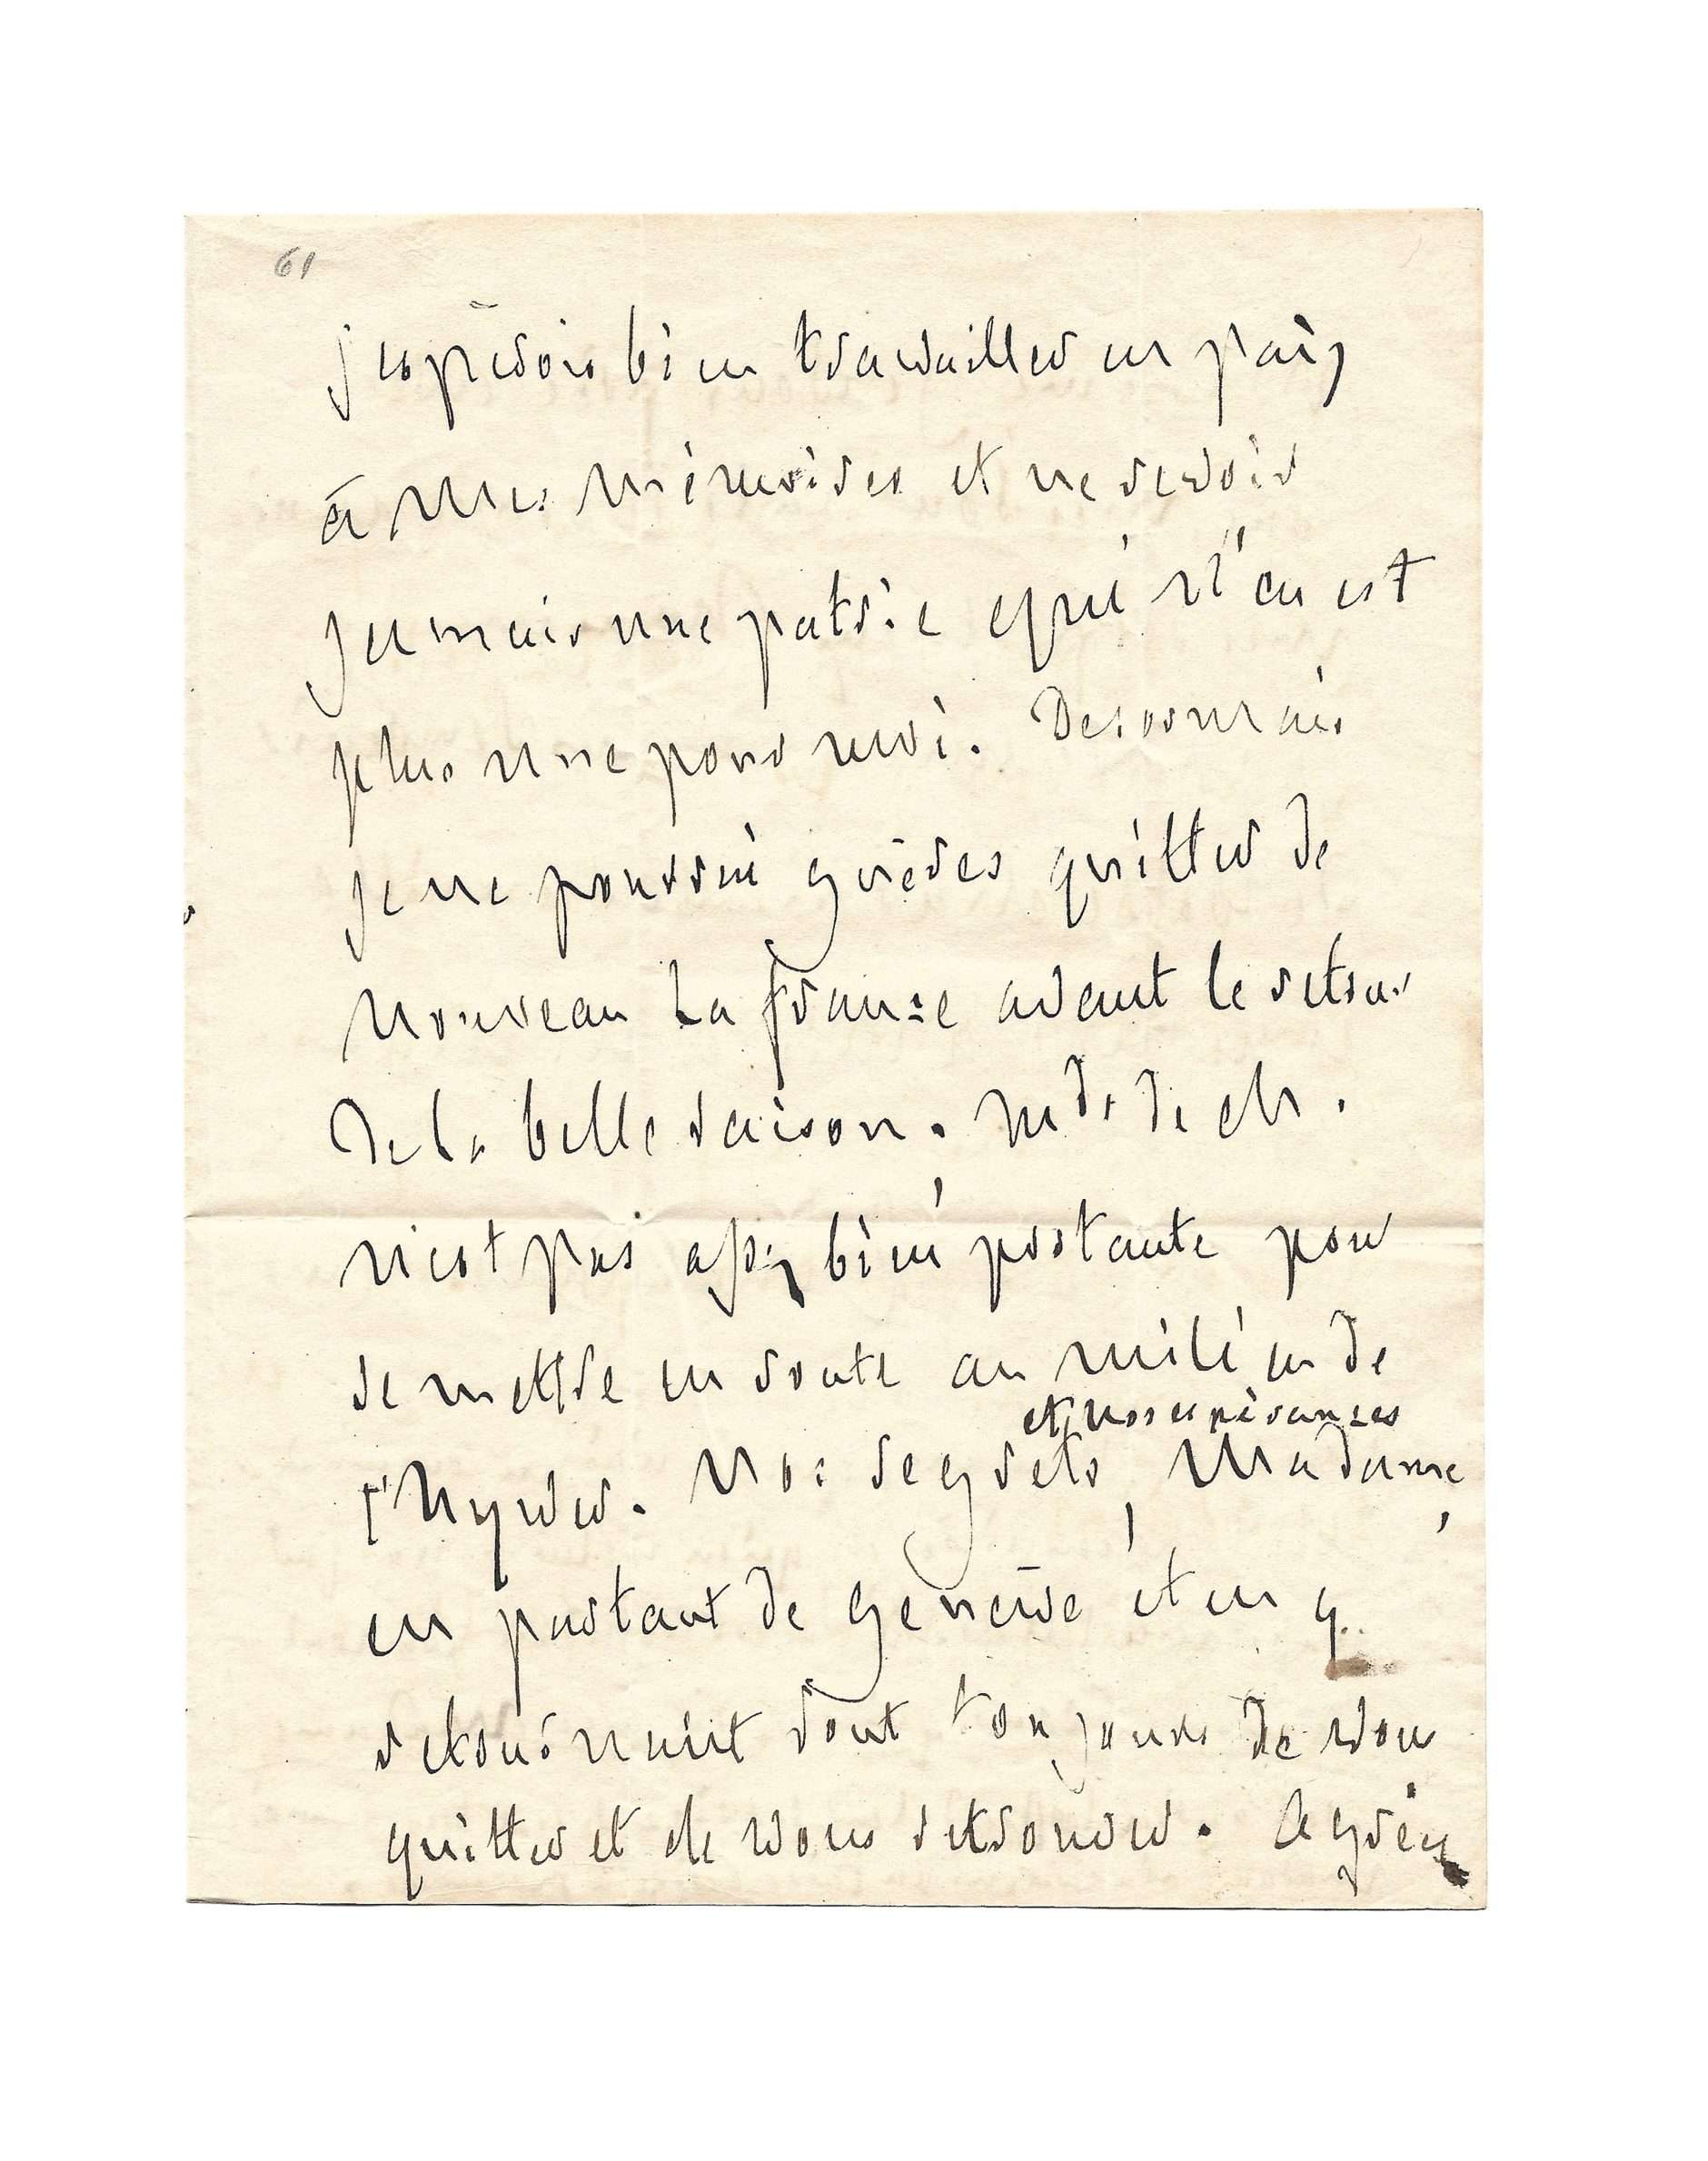 61
j'espérois bien travailler en paix
à mes mémoires et ne revoir
jamais une patrie qui n'en est
plus une pour moi. Desormais
je ne pourrai guères quitter de
nouveau la france avant le retour
de la belle saison. Md. de Ch.
n'est pas assez bien portante pour
se mettre en route au milieu de
et nos espérances
l'hyver. Nos regrets, Madame,
en partant de genève et en y
retournant sont toujours de vous
quitter et de vous retrouver. Agréez